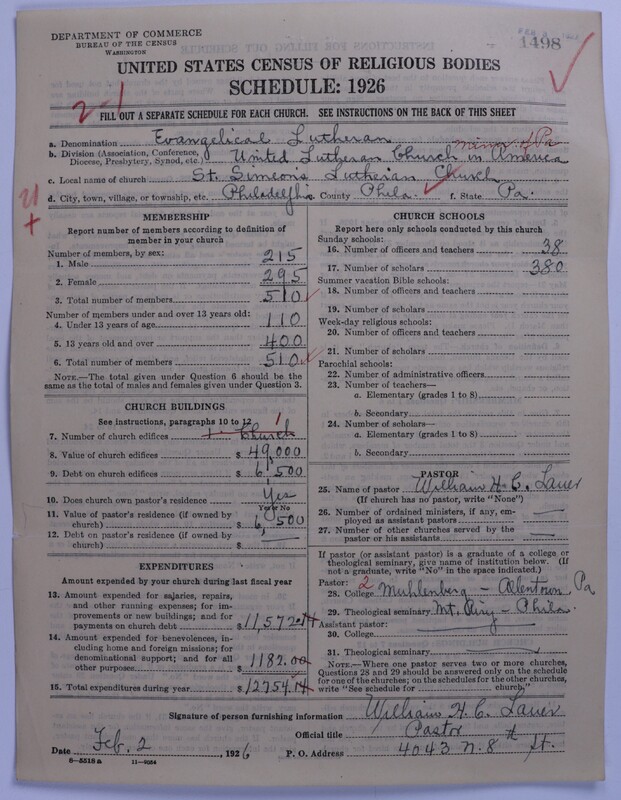 DEPARTMENT OF COMMERCE
BUREAU OF THE CENSUS
WASHINGTON
1498
UNITED STATES CENSUS OF RELIGIOUS BODIES
SCHEDULE: 1926
2-1
FILL OUT A SEPARATE SCHEDULE FOR EACH CHURCH. SEE INSTRUCTIONS ON THE BACK OF THIS SHEET
a. Denomination Evangelical Lutheran
b. Division (Association, Conference, Diocese, Presbytery, Synod, etc.) United Lutheran Church in America
c. Local name of church St. Simeon's Lutheran Church
d. City, town, village, or township, etc. Philadelphia County Phila. f. State Pa.
MEMBERSHIP
Report number of members according to definition of
member in your church
Number of members, by sex:
1. Male 215
2. Female 295
3. Total number of members 510
Number of members under and over 13 years old:
4. Under 13 years of age 110
5. 13 years old and over 400
6. Total number of members 510
NOTE.—The total given under Question 6 should be
same as the total of males and females given under Question 3.
CHURCH BUILDINGS
See instructions, paragraphs 10 to 12
7. Number of church edifices 1. Church 1
8. Value of church edifices $ 49,000
9. Debt on church edifices $ 6,500
10. Does church own pastor's residence Yes
Yes or No
11. Value of pastor's residence (if owned by
church) $ 6,500
12. Debt on pastor's residence (if owned by
church) $ —
EXPENDITURES
Amount expended by your church during last fiscal year
13. Amount expended for salaries, repairs,
and other running expenses; for im-
provements or new buildings; and for
payments on church debt $ 11,572.14
14. Amount expended for benevolences, in-
cluding home and foreign missions; for
denominational support; and for all
other purposes 1182.00
15. Total expenditures during year $ 12754.14
CHURCH SCHOOLS
Report here only schools conducted by this church
Sunday schools:
16. Number of officers and teachers 38
17. Number of scholars 380
Summer vacation Bible schools:
18. Number of officers and teachers
19. Number of scholars
Week-day religious schools:
20. Number of officers and teachers
21. Number of scholars
Parochial schools:
22. Number of administrative officers
23. Number of teachers—
a. Elementary (grades 1 to 8)
b. Secondary
24. Number of scholars—
a. Elementary (grades 1 to 8)
b. Secondary
PASTOR
25. Name of pastor William H. C. Lauer
(If church has no pastor, write "None")
26. Number of ordained ministers, if any, em-
ployed as assistant pastors —
27. Number of other churches served by the
pastor or his assistants —
If pastor (or assistant pastor) is a graduate of a college or
theological seminary, give name of institution below. (If
not a graduate, write "No" in the space indicated.)
Pastor: 2
28. College Muhlenberg - Allentown, Pa
29. Theological seminary Mt. Airy - Phila.
Assistant pastor:
30. College
31. Theological seminary
NOTE.—Where one pastor serves two or more churches,
Questions 28 and 29 should be answered only on the schedule
for one of the churches; on the schedules for the other churches,
write "See schedule for church."
Signature of person furnishing information William H. C. Lauer
Official title Pastor
Date Feb. 2, 1926, P. O. Address 4043 N. 8th St.
8—5518 a 11—9564